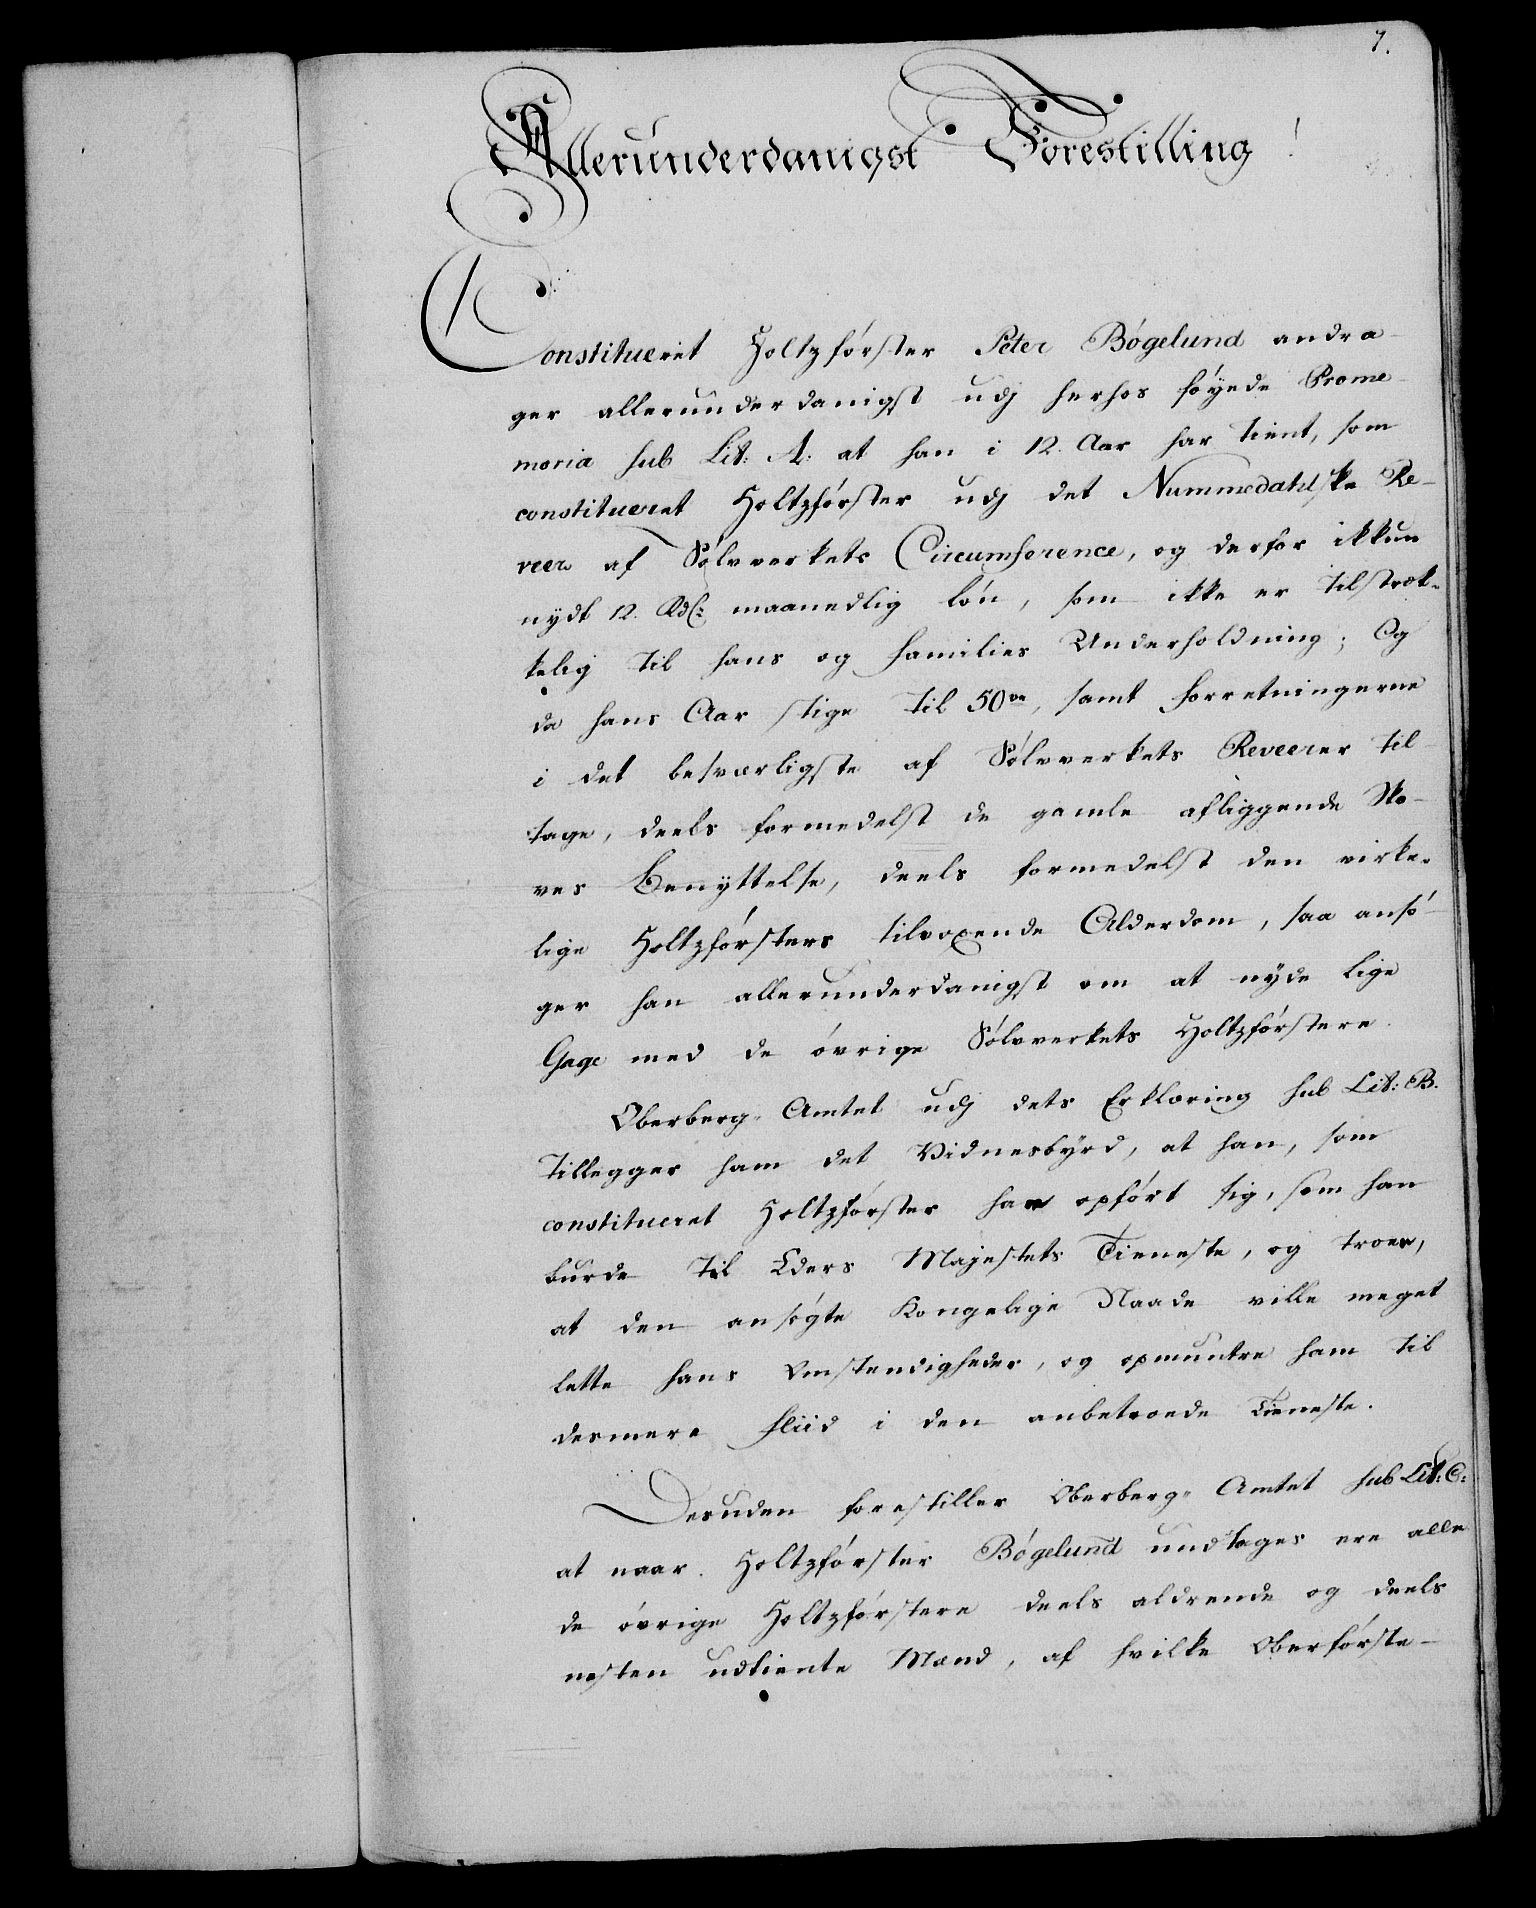 7.
Allerunderdanigst Forestilling!
Constitueret Holtzförster Peter Bögelund andra-
ger allerunderdanigst udj herhos föyede Prome-
moria sub Lit: A: at han i 12. Aar har tient, som
constitueret Holtzförster udj det Nummedahlske Re-
veer af Sölvverkets Circumference, og derfor ikkun
nydt 12. Rdlr maanedlig lön, som ikke er tilstræk-
kelig til hans og Families Underholdning; Og
da hans Aar stige til 50ve, samt Forretningerne
i det besværligste af Sölvverkets Reveerer til-
tage, deels formedelst de gamle afliggende Sko-
ves Benyttelse, deels formedelst den virke-
lige Holtzförsters tilvoxende Alderdom, saa ansö-
ger han allerunderdanigst om at nyde lige
Gage med de övrige Sölvverkets Holtzförstere.
Oberberg-Amtet udj dets Erklæring sub Lit: B.
Tillegger ham det Vidnesbyrd, at han, som
constitueret Holtzförster har opfört sig, som han
burde til Eders Majestets Tieneste, og troer,
at den ansögte Kongelige Naade ville meget
lette hans Omstendigheder, og opmuntre ham til
desmere Fliid i den anbetroede Tieneste.
Desuden forestiller Oberberg-Amtet sub Lit: C:
at naar Holtzförster Bögelund undtages ere alle
de övrige Holtzförstere deels aldrende og deels
nesten udtiente Mænd, af hvilke Oberförste-